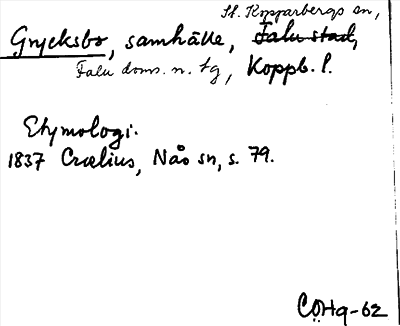 St. Kopparbergs sn,
Grycksbo, samhälle, Falu stad,
Falu doms. n. tg, Koppb. l.
Etymologi.
1837 Crælius, Nås sn, s. 79.
CÖHg-62